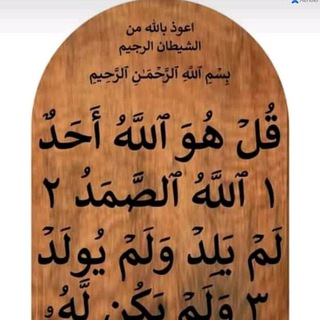 اعوذ بالله من
الشيطان الرجيم
بِسْمِ ٱللَّهِ ٱلرَّحْمَـٰنِ ٱلرَّحِيمِ
قُلْ هُوَ ٱللَّهُ أَحَدٌ
١ ٱللَّهُ ٱلصَّمَدُ ٢
لَمْ يَلِدْ وَلَمْ يُولَدْ
٣ وَلَمْ يَكُن لَّهُۥ